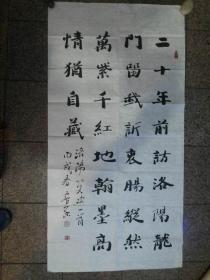 二十年前訪洛陽龍
門醫我訴衷腸縱然
萬紫千紅地翰墨高
情猶自藏
洛陽
一首
丙戌春